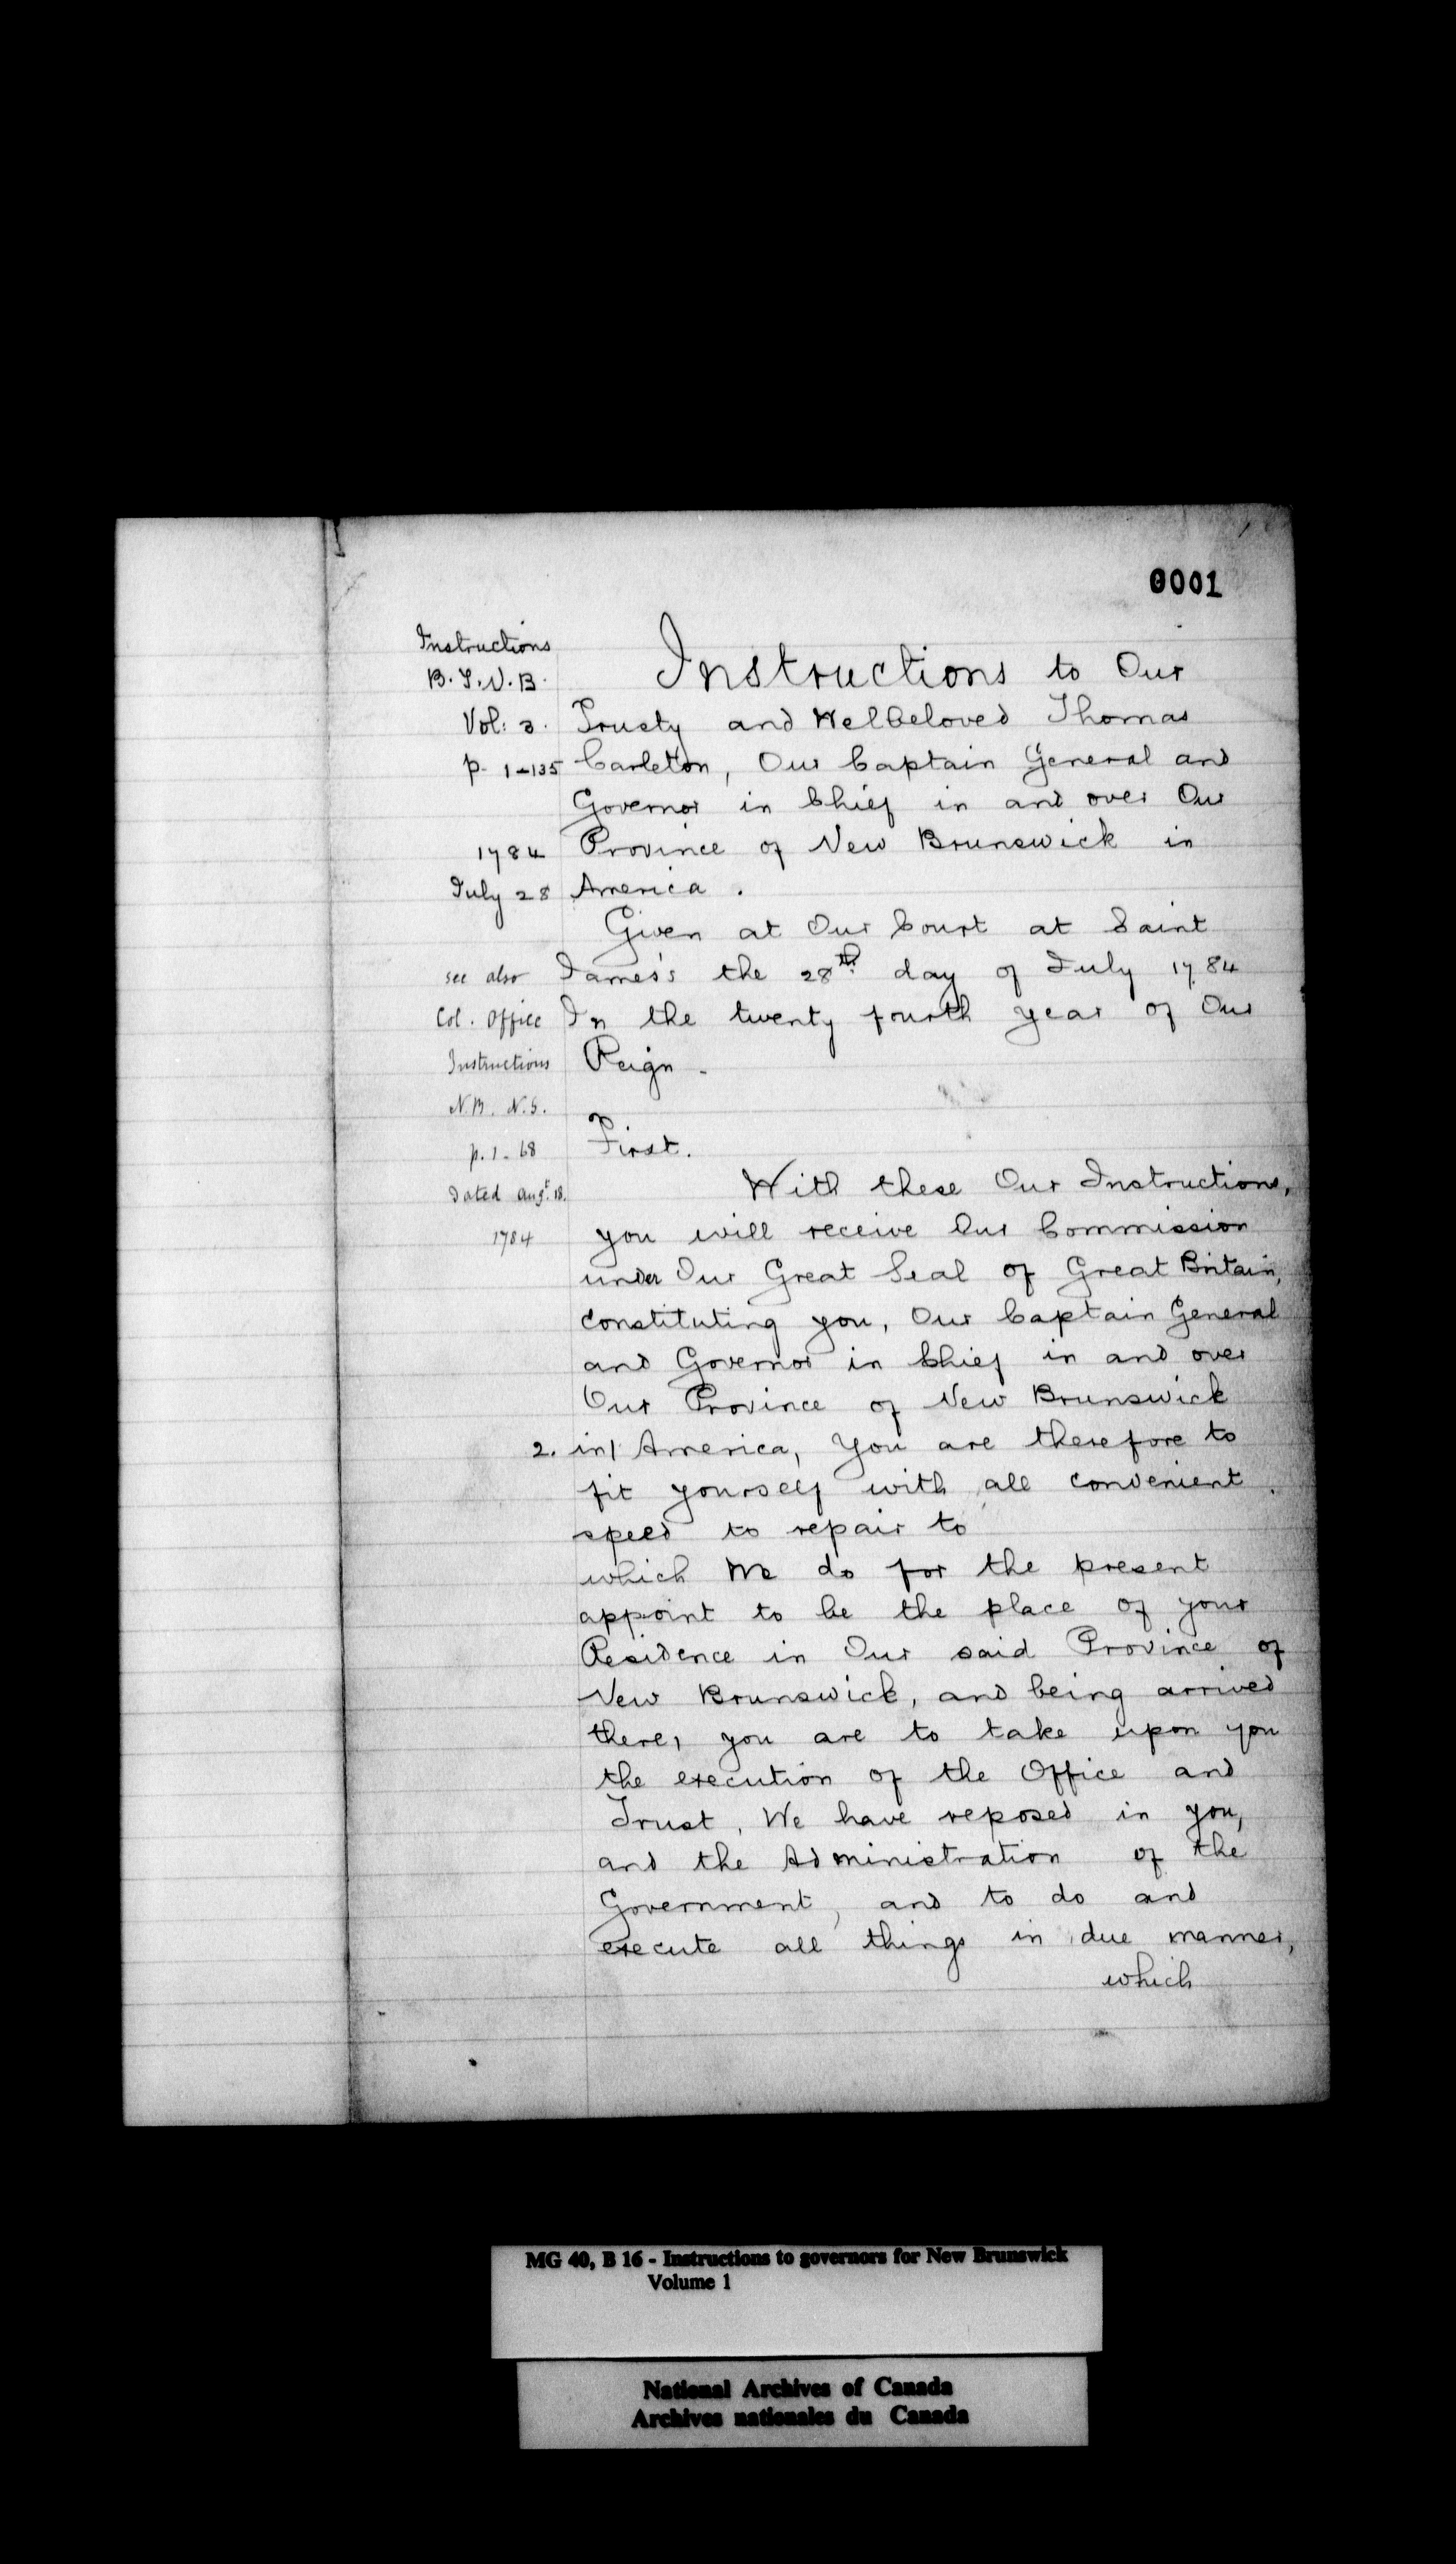 0001
Instructions
B.T.N.B.
Vol: 3.
p. 1-135
1784
July 28
see also
Col. Office
Instructions
N.B. N.S.
p. 1-68
Dated Augt. 18.
1784
Instructions to Our
Trusty and Welbeloved Thomas
Carleton, Our Captain General and
Governor in Chief in and over Our
Province of New Brunswick in
America.
Given at Our Court at Saint
James's the 28th day of July 1784
In the twenty fourth year of Our
Reign.
First.
With these Our Instructions,
you will receive Our Commission
under Our Great Seal of Great Britain,
constituting you, Our Captain General
and Governor in Chief in and over
Our Province of New Brunswick
2. in/ America, You are therefore to
fit yourself with all convenient
speed to repair to
which We do for the present
appoint to be the place of your
Residence in Our said Province of
New Brunswick, and being arrived
there, you are to take upon you
the execution of the Office and
Trust, We have reposed in you,
and the Administration of the
Government, and to do and
execute all things in due manner,
which
MG 40, B 16 - Instructions to governors for New Brunswick
Volume 1
National Archives of Canada
Archives nationales du Canada